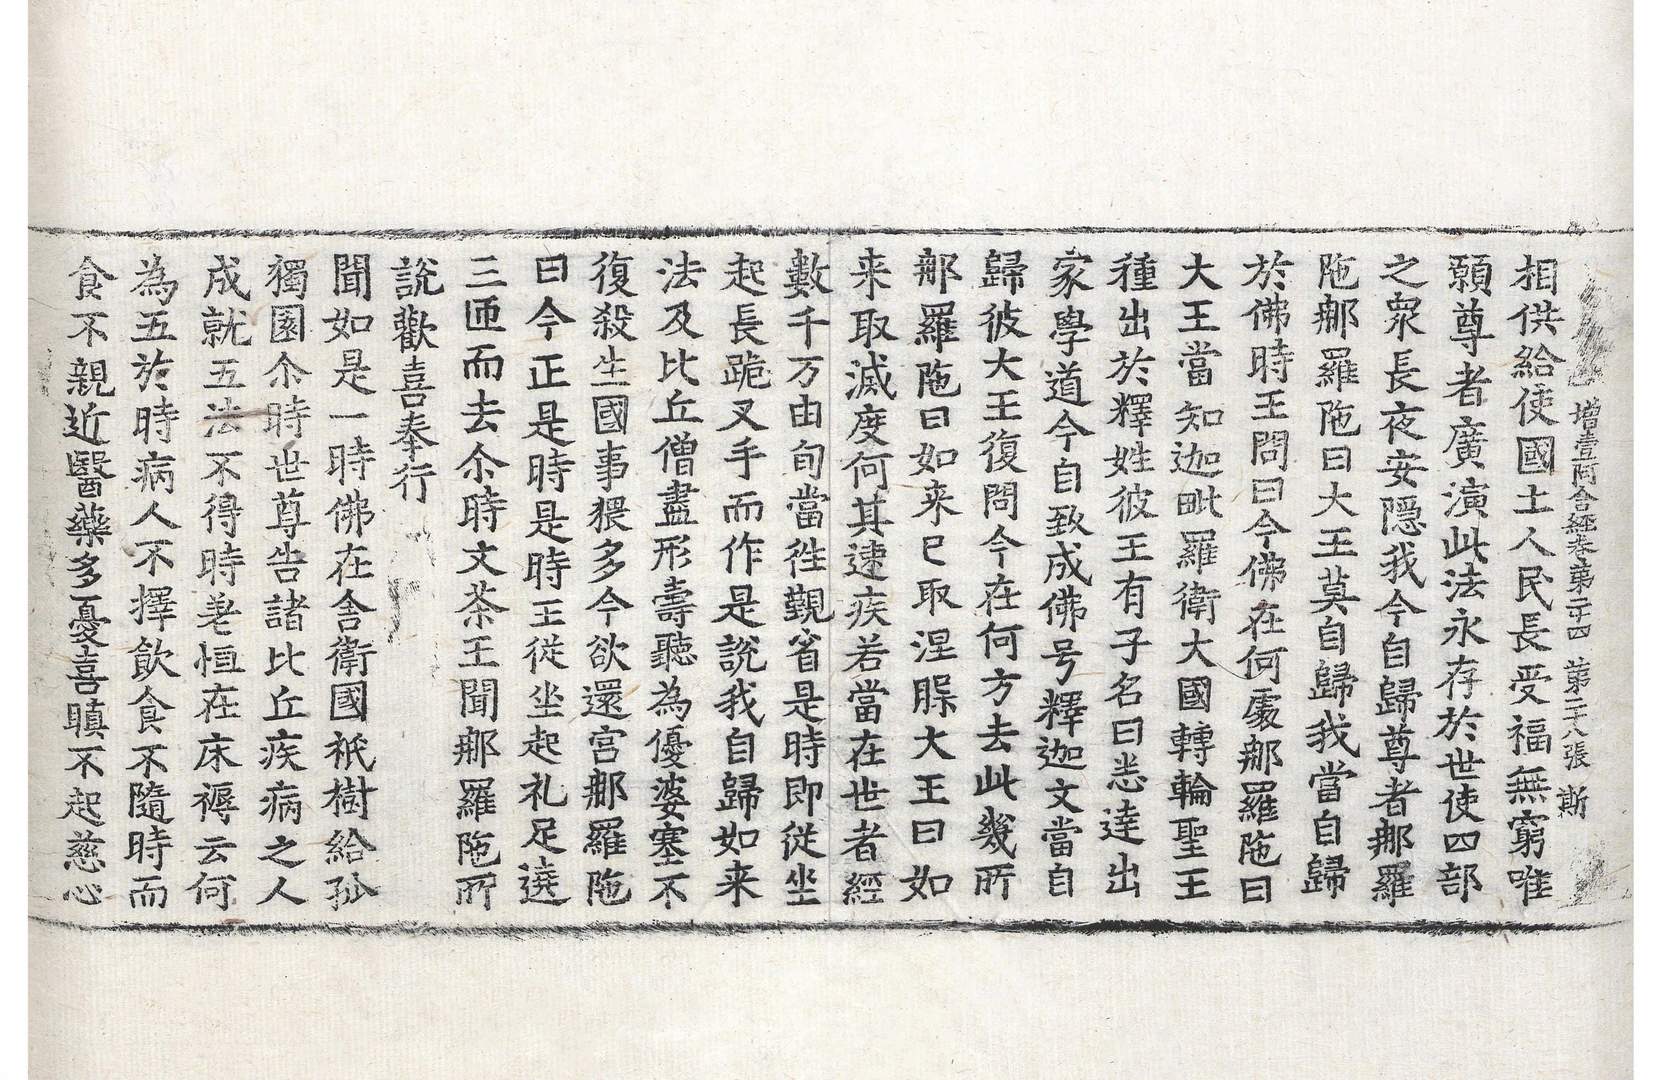 增壹阿含經卷第二十四 第二十八張 斯
相供給使國土人民長受福無窮唯
願尊者廣演此法永存於世使四部
之衆長夜安隱我今自歸尊者那羅
陁那羅陁曰大王莫自歸我當自歸
於佛時王問曰今佛在何處那羅陁曰
大王當知迦毗羅衛大國轉輪聖王
種出於釋姓彼王有子名曰悉達出
家學道今自致成佛号釋迦文當自
歸彼大王復問今在何方去此幾所
那羅陁曰如来已取涅槃大王曰如
来取滅度何其速疾若當在世者經
數千万由旬當往覲省是時即従坐
起長跪叉手而作是說我自歸如来
法及比丘僧盡形壽聽為優婆塞不
復殺生國事猥多今欲還宮那羅陁
曰今正是時是時王従坐起礼足遶
三匝而去尒時文荼王聞那羅陁所
說歡喜奉行
聞如是一時佛在舍衛國祇樹給孤
獨園尒時世尊告諸比丘疾病之人
成就五法不得時差恒在床褥云何
為五於時病人不擇飲食不隨時而
食不親近醫藥多憂喜瞋不起慈心